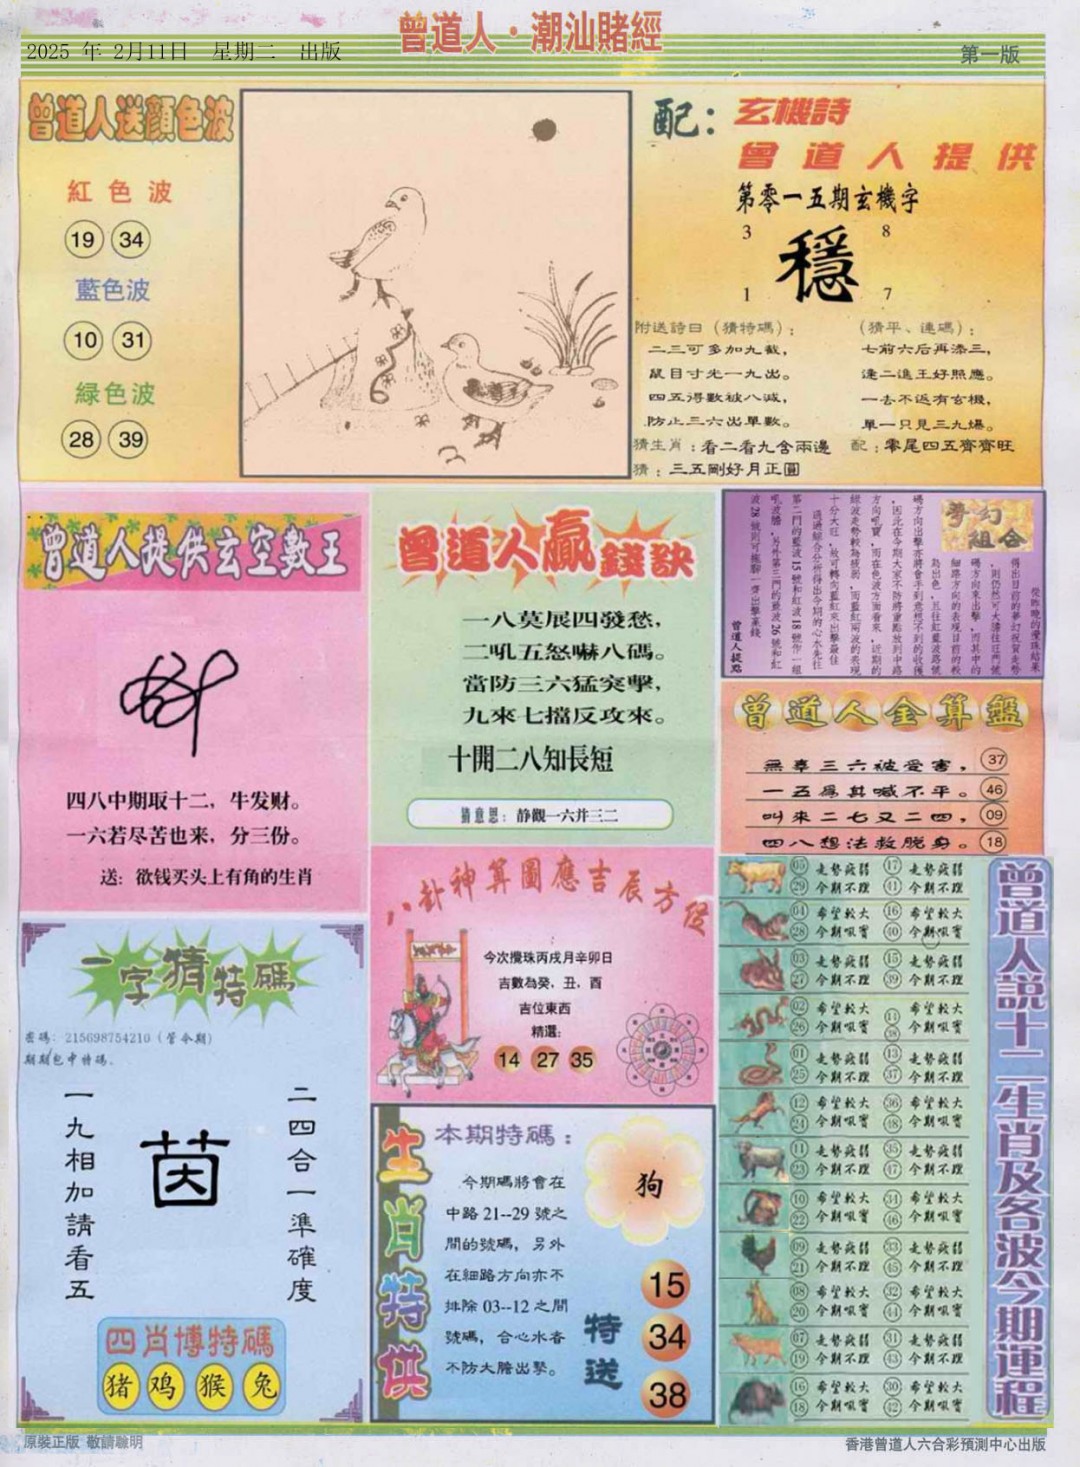 2025 年 2月11日 星期二 出版
曾道人·潮汕賭經
第一版
曾道人送顏色波
紅色波
19 34
藍色波
10 31
緑色波
28 39
配：
玄機詩
曾道人提供
第零一五期玄機字
3 8
穩
1 7
附送詩曰（猜特碼）：
二三可多加九截，
鼠目寸光一九出。
四五得數被八減，
防止三六出單數。
（猜平、連碼）：
七前六后再添三，
逢二進王好照應。
一去不返有玄機，
單一只見三九爆。
猜生肖：看二看九含兩邊
配：零尾四五齊齊旺
猜：三五剛好月正圓
曾道人提供玄空數王
四八中期取十二，牛发财。
一六若尽苦也来，分三份。
送：欲钱买头上有角的生肖
曾道人贏錢訣
一八莫展四發愁，
二吼五怒嚇八碼。
當防三六猛突擊，
九來七擋反攻來。
十開二八知長短
猜意思：静觀一六并三二
夢幻組合
曾道人提點
曾道人金算盤
無辜三六被受害， 37
一五爲其喊不平。 46
叫來二七又二四， 09
四八想法救脱身。 18
一字猜特碼
密碼：215698754210（管令期）
期期包中特碼。
一九相加請看五
茵
二四合一準確度
四肖博特碼
猪 鸡 猴 兔
八卦神算圖應吉辰方位
今次攪珠丙戌月辛卯日
吉數為癸，丑，酉
吉位東西
精選：
14 27 35
生肖特供
本期特碼：
今期碼將會在
中路 21--29 號之
間的號碼，另外
在細路方向亦不
排除 03--12 之間
號碼，合心水者
不防大膽出擊。
狗
特送
15
34
38
曾道人説十二生肖及各波今期運程
05 走勢疲弱 17 走勢疲弱
29 今期不理 41 今期不理
04 希望較大 16 希望較大
28 今期吼實 40 今期吼實
03 走勢疲弱 15 走勢疲弱
27 今期不理 39 今期不理
02 希望較大 14 希望較大
26 今期吼實 38 今期吼實
01 走勢疲弱 13 走勢疲弱
25 今期不理 37 今期不理
12 希望較大 36 希望較大
24 今期吼實 48 今期吼實
11 走勢疲弱 35 走勢疲弱
23 今期不理 47 今期不理
10 希望較大 34 希望較大
22 今期吼實 46 今期吼實
09 走勢疲弱 33 走勢疲弱
21 今期不理 45 今期不理
08 希望較大 32 希望較大
20 今期吼實 44 今期吼實
07 走勢疲弱 31 走勢疲弱
19 今期不理 43 今期不理
希望較大 30 希望較大
18 今期吼實 42 今期吼實
原裝正版 敬請聰明
香港曾道人六合彩預測中心出版